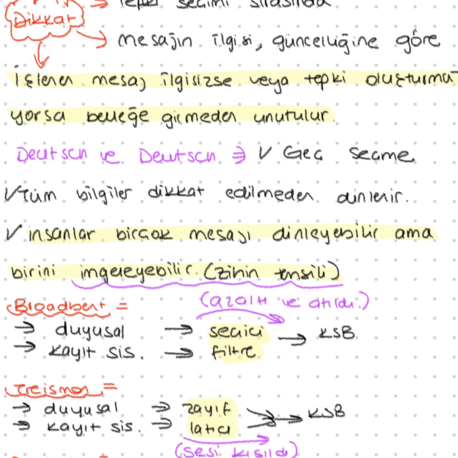 → tepki seçimi sırasında
Dikkat
→ mesajın ilgisi, güncelliğine göre
İşlenen mesaj ilgisizse veya tepki oluşturma
yorsa belleğe girmeden unutulur
Deutsch ve Deutsch ⇒ ✓ Geç seçme
✓ tüm bilgiler dikkat edilmeden dinlenir.
✓ insanlar birçok mesajı dinleyebilir ama
birini imgeleyebilir (zihin temsili)
Broadbent = (azalt ve atıldı.)
→ duyusal → seçici → KSB
→ kayıt sis. → filtre
Treisman =
→ duyusal → zayıf → KSB
→ kayıt sis. → latıcı
(sesi kısıldı)